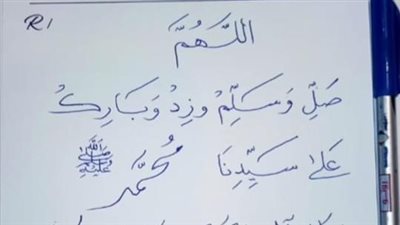 R1
اللَّهُمَّ
صَلِّ وَسَلِّمْ وزِدْ وَبَارِكْ
عَلىٰ سَيِّدِنَا مُحَمَّد ﷺ